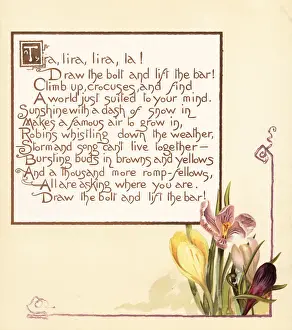 Tra, lira, lira, la!
Draw the bolt and lift the bar!
Climb up, crocuses, and find
A world just suited to your mind.
Sunshine with a dash of snow in
Makes a famous air to grow in,
Robins whistling down the weather,
Storm and song can't live together—
Bursling buds in browns and yellows
And a thousand more romp-fellows,
All are asking where you are.
Draw the bolt and lift the bar!